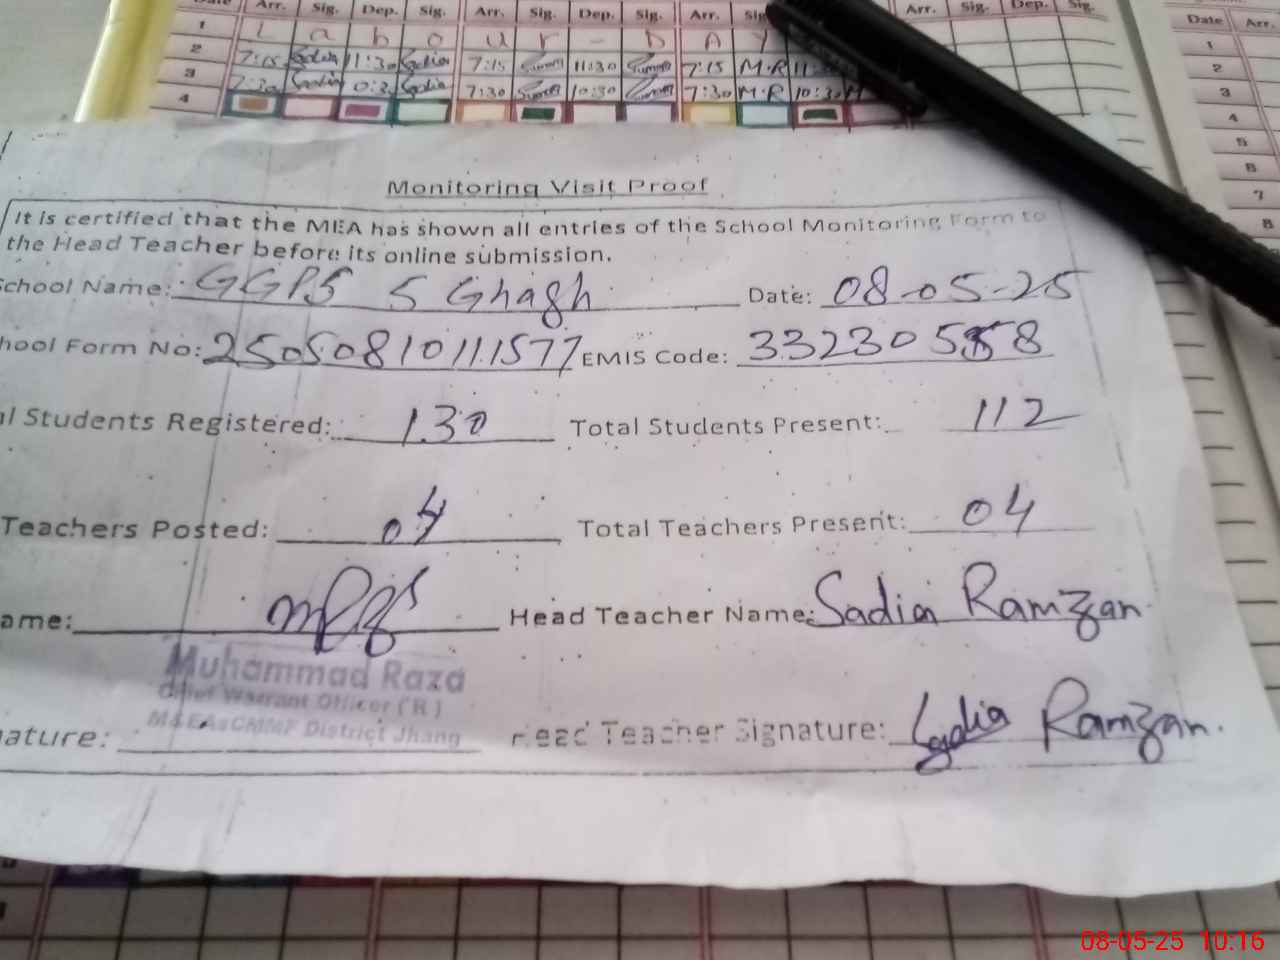 Date Arr. Sig. Dep. Sig. Arr. Sig. Dep. Sig. Arr. Sig. Arr. Sig. Dep. Sig.
Date Arr.
1 L a b o u r - D A Y
2 7:15 Sadia 11:30 Sadia 7:15 11:30 7:15 M.R
3 7:30 Sadia Sadia 7:30 10:30 7:30 M.R 10:30
4
1
2
3
4
5
6
7
8
Monitoring Visit Proof
It is certified that the MEA has shown all entries of the School Monitoring Form to
the Head Teacher before its online submission.
chool Name: GGPS S Ghagh Date: 08-05-25
hool Form No: 25050810111577 EMIS Code: 33230558
al Students Registered: 130 Total Students Present: 112
Teachers Posted: 04 Total Teachers Present: 04
ame: Head Teacher Name: Sadia Ramzan
Muhammad Raza
Chief Warrant Officer (R)
M&EAsCMMF District Jhang
ature: Head Teacher Signature: Sadia Ramzan.
08-05-25 10:16